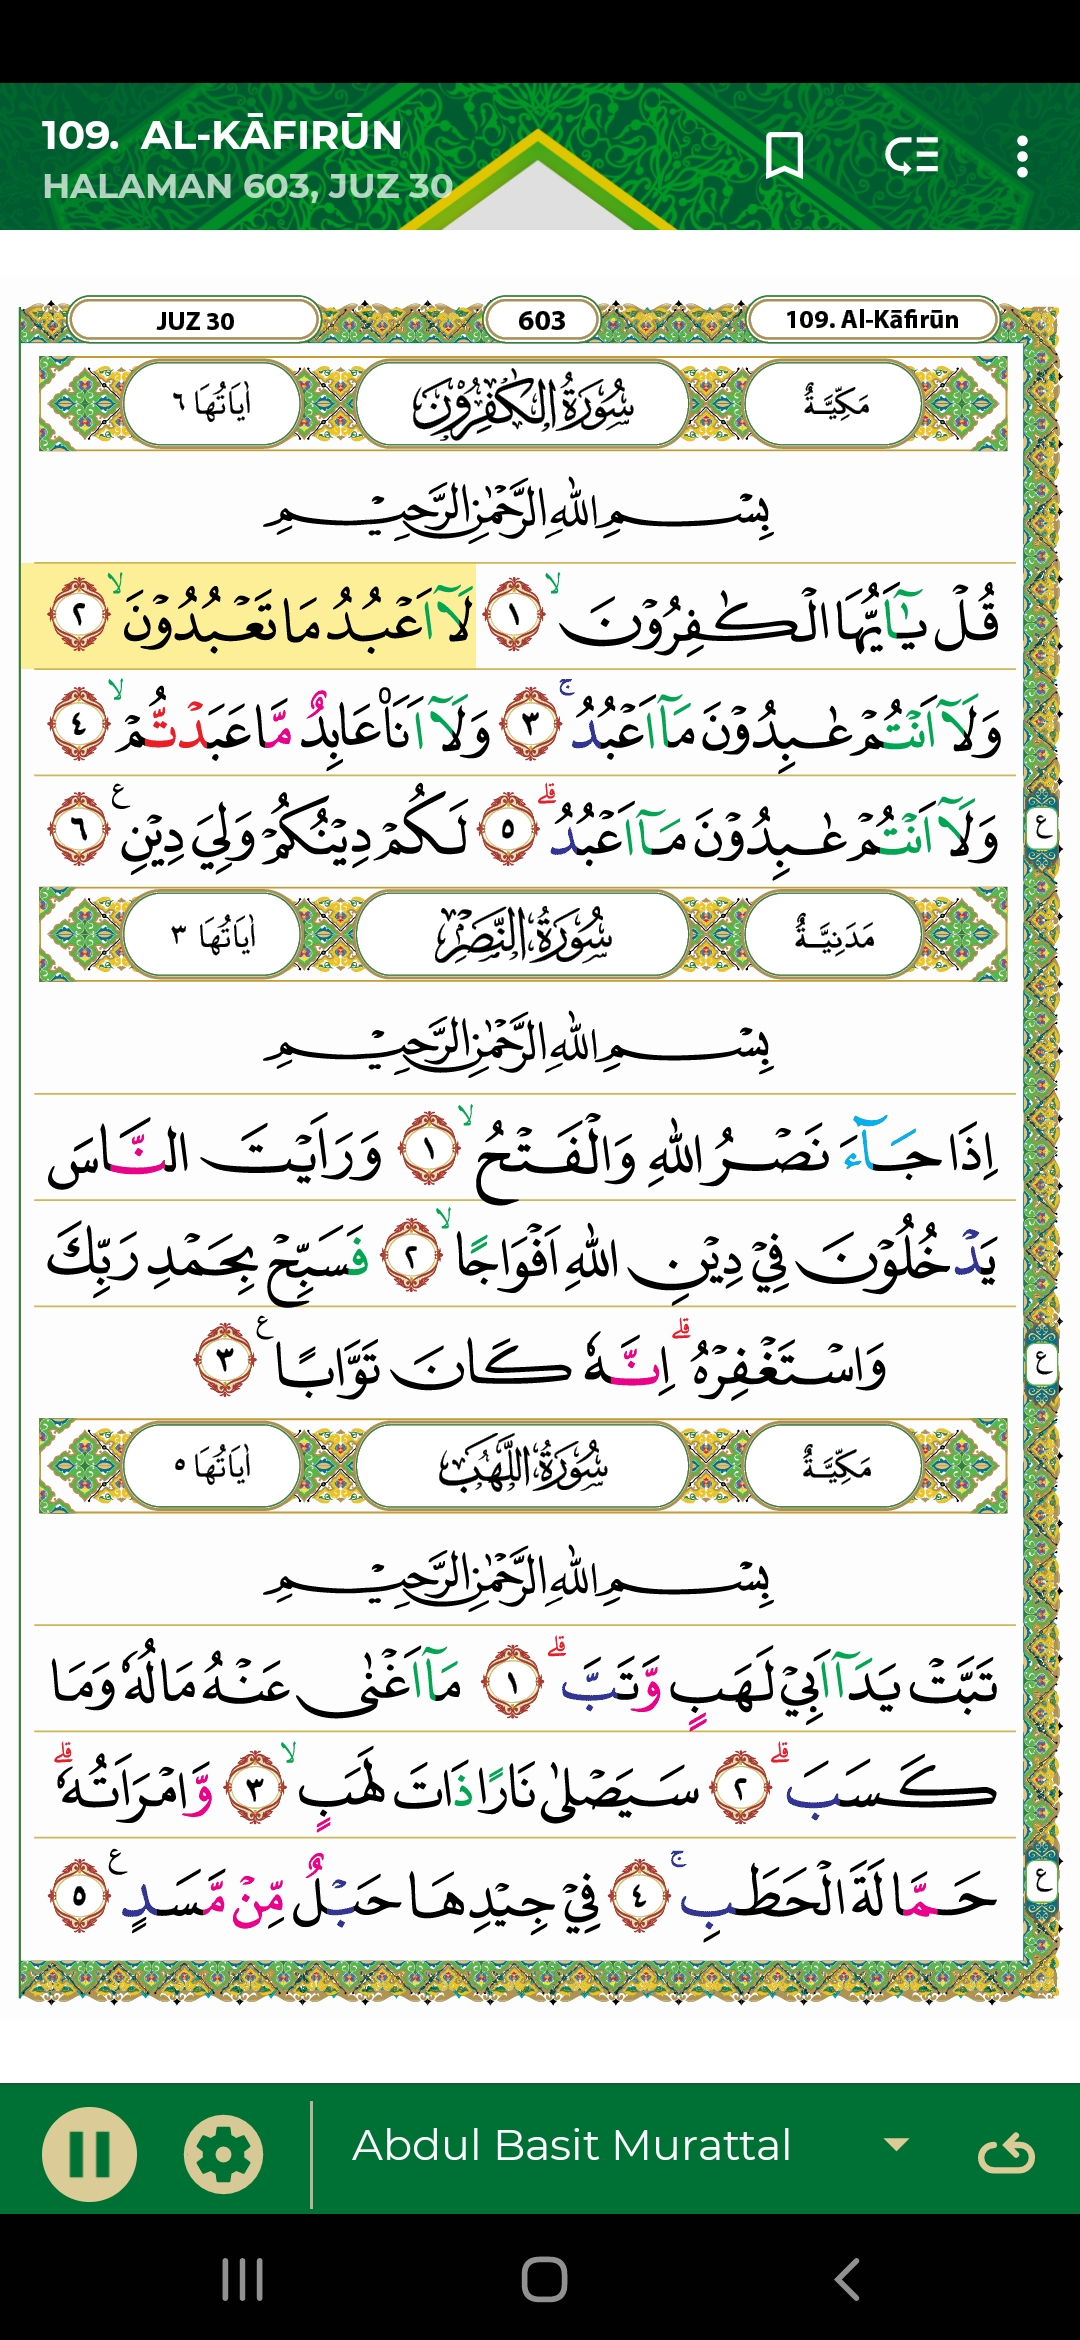 109. AL-KĀFIRŪN
HALAMAN 603, JUZ 30
JUZ 30
603
109. Al-Kāfirūn
مَكِّيَّةٌ سُوْرَةُ الْكٰفِرُوْنَ اٰيَاتُهَا ٦
بِسْمِ اللهِ الرَّحْمٰنِ الرَّحِيْمِ
قُلْ يٰٓاَيُّهَا الْكٰفِرُوْنَۙ ١ لَآ اَعْبُدُ مَا تَعْبُدُوْنَۙ ٢
وَلَآ اَنْتُمْ عٰبِدُوْنَ مَآ اَعْبُدُۚ ٣ وَلَآ اَنَا۠ عَابِدٌ مَّا عَبَدْتُّمْۙ ٤
وَلَآ اَنْتُمْ عٰبِدُوْنَ مَآ اَعْبُدُۗ ٥ لَكُمْ دِيْنُكُمْ وَلِيَ دِيْنِ ࣖ ٦
ع
مَدَنِيَّةٌ سُوْرَةُ النَّصْرِ اٰيَاتُهَا ٣
بِسْمِ اللهِ الرَّحْمٰنِ الرَّحِيْمِ
اِذَا جَاۤءَ نَصْرُ اللهِ وَالْفَتْحُۙ ١ وَرَاَيْتَ النَّاسَ
يَدْخُلُوْنَ فِيْ دِيْنِ اللهِ اَفْوَاجًاۙ ٢ فَسَبِّحْ بِحَمْدِ رَبِّكَ
وَاسْتَغْفِرْهُۗ اِنَّهٗ كَانَ تَوَّابًا ࣖ ٣
ع
مَكِّيَّةٌ سُوْرَةُ اللَّهَبِ اٰيَاتُهَا ٥
بِسْمِ اللهِ الرَّحْمٰنِ الرَّحِيْمِ
تَبَّتْ يَدَآ اَبِيْ لَهَبٍ وَّتَبَّۗ ١ مَآ اَغْنٰى عَنْهُ مَالُهٗ وَمَا
كَسَبَۗ ٢ سَيَصْلٰى نَارًا ذَاتَ لَهَبٍۙ ٣ وَّامْرَاَتُهٗۗ
حَمَّالَةَ الْحَطَبِۚ ٤ فِيْ جِيْدِهَا حَبْلٌ مِّنْ مَّسَدٍ ࣖ ٥
ع
Abdul Basit Murattal